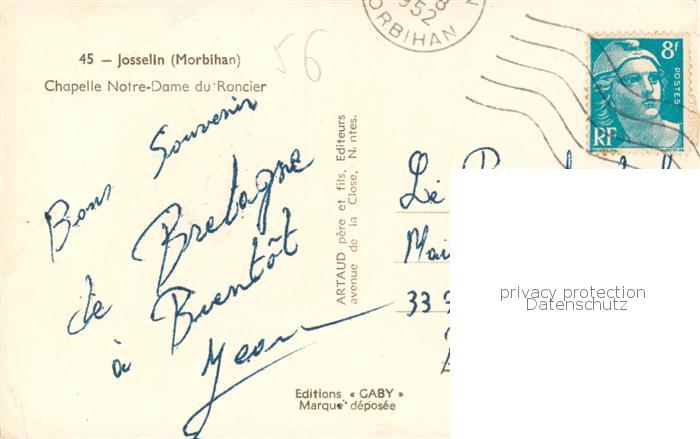 45 — Josselin (Morbihan)
Chapelle Notre-Dame du Roncier
56
1952
MORBIHAN
8f
POSTES
RF
Bons Souvenirs
de Bretagne
à Bientôt
Jean
ARTAUD père et fils, Editeurs
avenue de la Close, Nantes
Editions « GABY »
Marque déposée
Le
33
privacy protection
Datenschutz